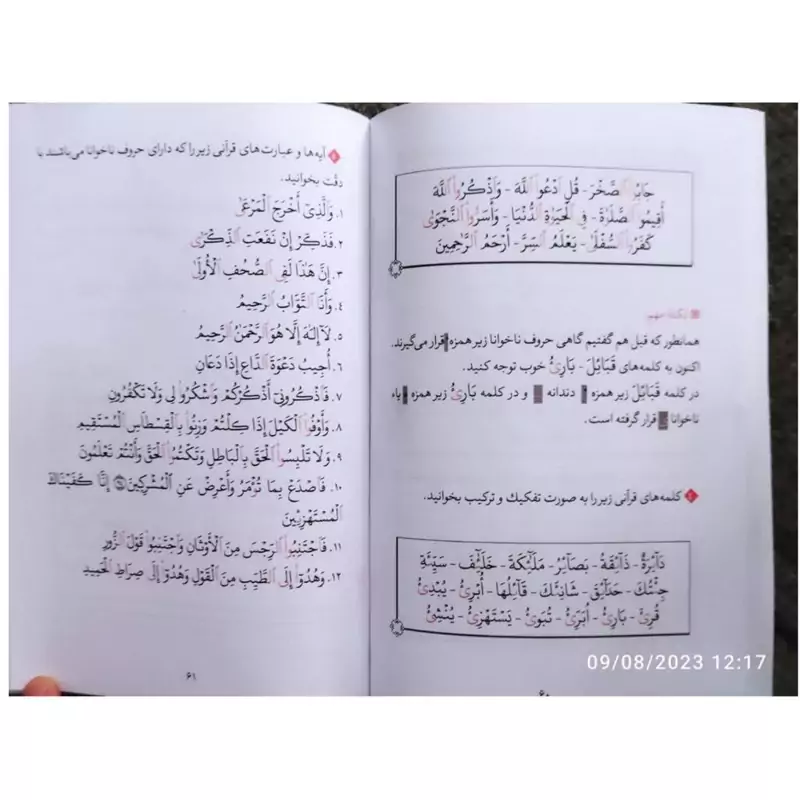 جَابُوا الصَّخْرَ - قُلِ ادْعُوا اللَّهَ - وَاذْكُرُوا اللَّهَ
أَقِيمُوا الصَّلَوٰةَ - فِي الْحَيَوٰةِ الدُّنْيَا - وَأَسَرُّوا النَّجْوَى
كَفَرُوا السُّفْلَىٰ - يَعْلَمُ السِّرَّ - أَرْحَمُ الرَّاحِمِينَ
نکته مهم
همانطور که قبل هم گفتیم گاهی حروف ناخوانا زیر همزه قرار می‌گیرند.
اکنون به کلمه‌های قَبَائِلَ - بَارِئُ خوب توجه کنید.
در کلمه قَبَائِلَ زیر همزه دندانه و در کلمه بَارِئُ زیر همزه یاء
ناخوانا قرار گرفته است.
٤ کلمه‌های قرآنی زیر را به صورت تفکیك و ترکیب بخوانید.
دَآئِرَةٌ - ذَآئِقَةُ - بَصَآئِرُ - مَلَٰٓئِكَةِ - خَلَٰٓئِفَ - سَيِّئَةٍ
جِئْتُكَ - حَدَآئِقَ - شَانِئَكَ - قَآئِلُهَا - أُبْرِئُ - يُبْدِئُ
قُرِئَ - بَارِئُ - أُبَرِّئُ - تُبَوِّئُ - يَسْتَهْزِئُ - يُنْشِئُ
٦٠
٤ آیه‌ها و عبارت‌های قرآنی زیر را که دارای حروف ناخوانا می‌باشند با
دقّت بخوانید.
١. وَالَّذِي أَخْرَجَ الْمَرْعَىٰ
٢. فَذَكِّرْ إِنْ نَفَعَتِ الذِّكْرَىٰ
٣. إِنَّ هَٰذَا لَفِي الصُّحُفِ الْأُولَىٰ
٤. وَأَنَا التَّوَّابُ الرَّحِيمُ
٥. لَآ إِلَٰهَ إِلَّا هُوَ الرَّحْمَٰنُ الرَّحِيمُ
٦. أُجِيبُ دَعْوَةَ الدَّاعِ إِذَا دَعَانِ
٧. فَاذْكُرُونِي أَذْكُرْكُمْ وَاشْكُرُوا لِي وَلَا تَكْفُرُونِ
٨. وَأَوْفُوا الْكَيْلَ إِذَا كِلْتُمْ وَزِنُوا بِالْقِسْطَاسِ الْمُسْتَقِيمِ
٩. وَلَا تَلْبِسُوا الْحَقَّ بِالْبَاطِلِ وَتَكْتُمُوا الْحَقَّ وَأَنْتُمْ تَعْلَمُونَ
١٠. فَاصْدَعْ بِمَا تُؤْمَرُ وَأَعْرِضْ عَنِ الْمُشْرِكِينَ إِنَّا كَفَيْنَاكَ
الْمُسْتَهْزِئِينَ
١١. فَاجْتَنِبُوا الرِّجْسَ مِنَ الْأَوْثَانِ وَاجْتَنِبُوا قَوْلَ الزُّورِ
١٢. وَهُدُوٓا إِلَى الطَّيِّبِ مِنَ الْقَوْلِ وَهُدُوٓا إِلَىٰ صِرَاطِ الْحَمِيدِ
٦١
09/08/2023 12:17